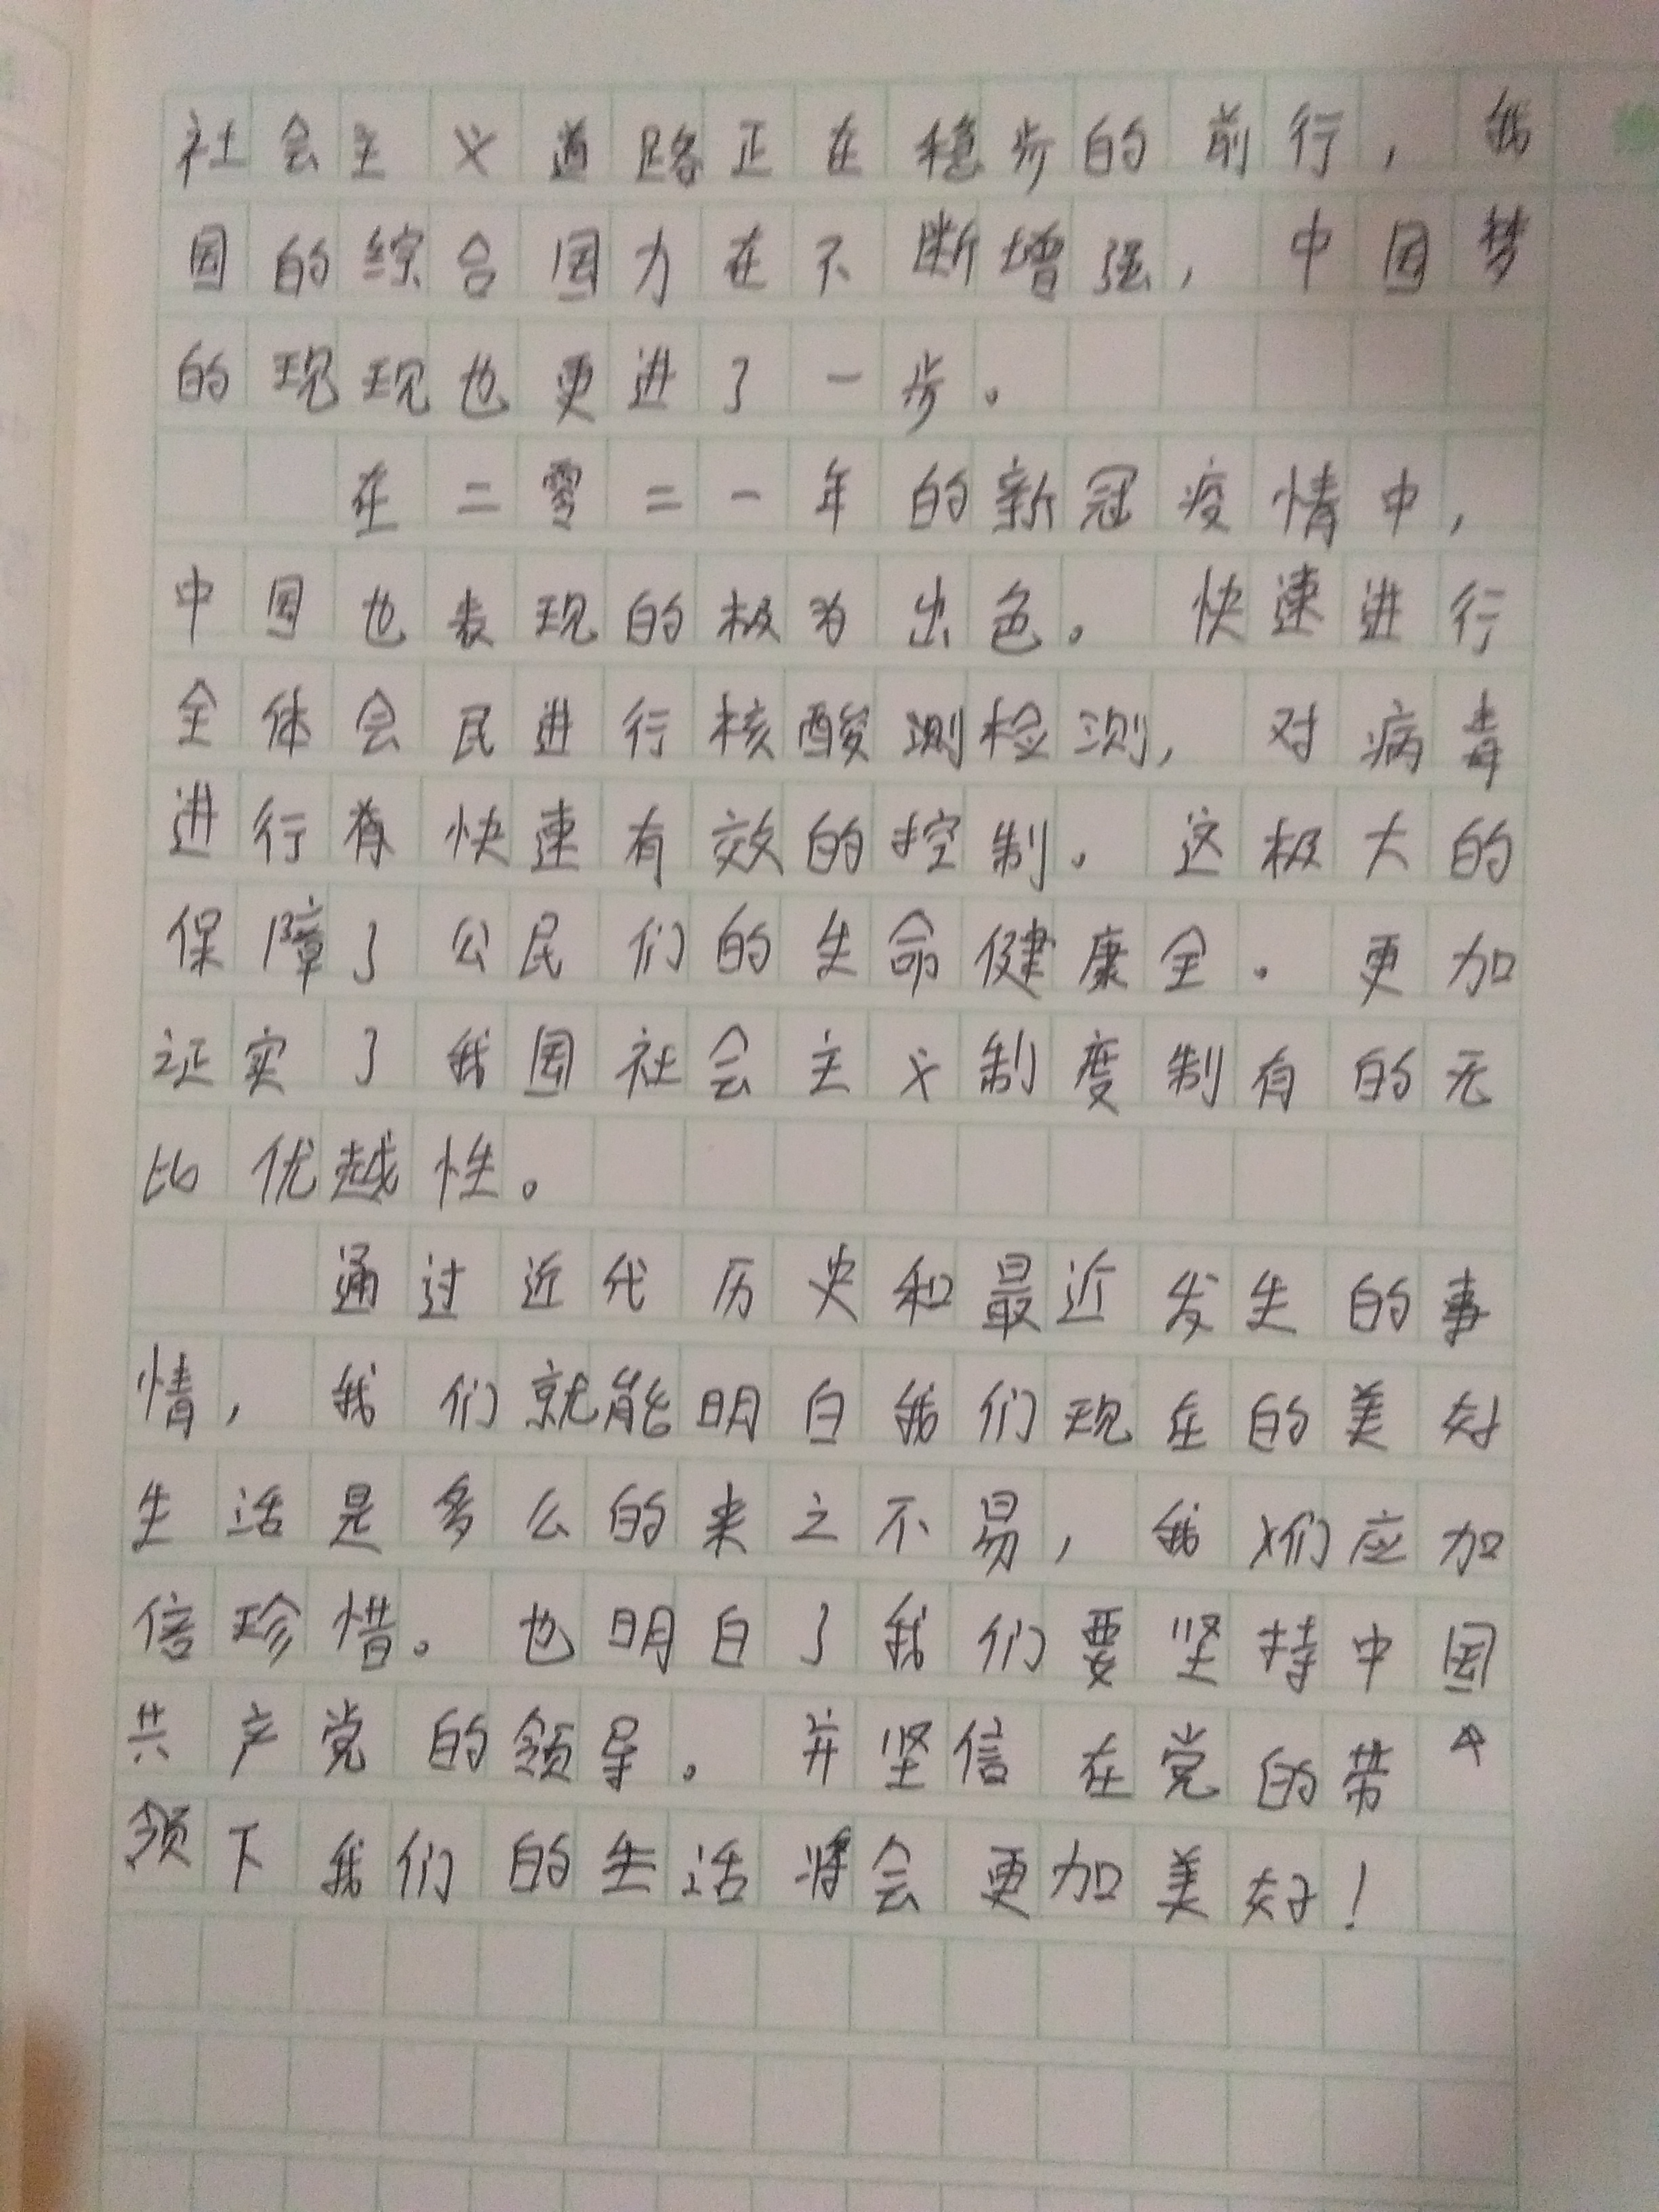 社会主义道路正在稳步的前行，我
国的综合国力在不断增强，中国梦
的现现也更进了一步。
在二零二一年的新冠疫情中，
中国也表现的极为出色。快速进行
全体会民进行核酸测检测，对病毒
进行有快速有效的控制。这极大的
保障了公民们的生命健康全。更加
证实了我国社会主义制度制有的无
比优越性。
通过近代历史和最近发生的事
情，我们就能明白我们现在的美好
生活是多么的来之不易，我们应加
倍珍惜。也明白了我们要坚持中国
共产党的领导。并坚信在党的带
领下我们的生活将会更加美好！